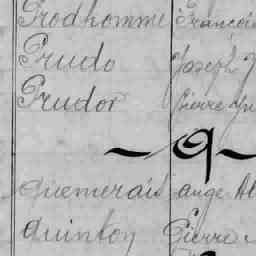 Prodhomme Françoi
Prudo Joseph
Prudor Pierre
~ Q ~
Quemerais ange Al
Quinton Pierre